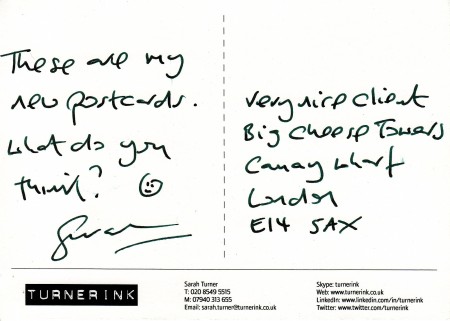 These are my
new postcards.
What do you
think?
Sarah
very nice client
Big Cheese Towers
Canary Wharf
London
E14 5AX
TURNERINK
Sarah Turner
T: 020 8549 5515
M: 07940 313 655
Email: sarah.turner@turnerink.co.uk
Skype: turnerink
Web: www.turnerink.co.uk
LinkedIn: www.linkedin.com/in/turnerink
Twitter: www.twitter.com/turnerink